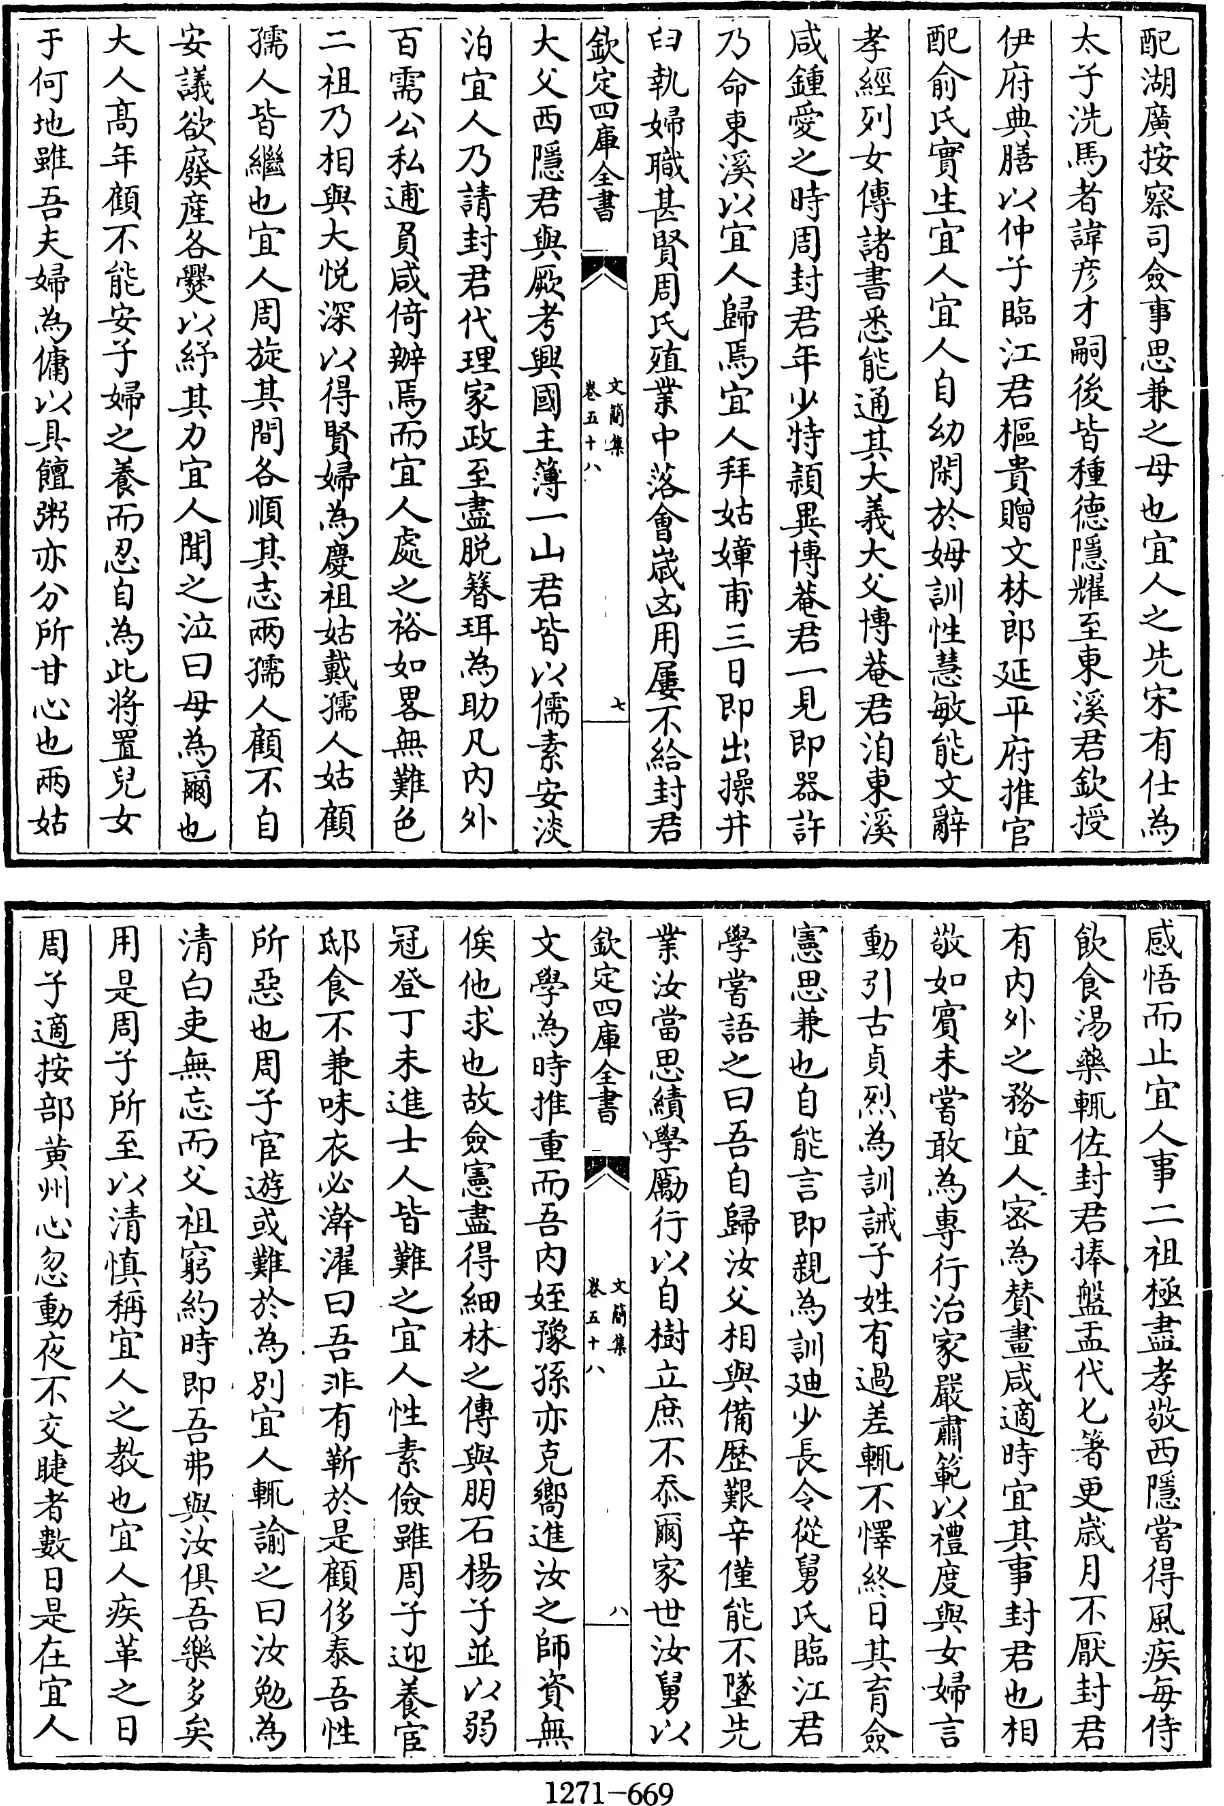 配湖廣按察司僉事思兼之母也宜人之先宋有仕為
太子洗馬者諱彦才嗣後皆種德隱耀至東溪君欽授
伊府典膳以仲子臨江君樞貴贈文林郎延平府推官
配俞氏實生宜人宜人自幼閑於姆訓性慧敏能文辭
孝經列女傳諸書悉能通其大義大父博菴君洎東溪
咸鍾愛之時周封君年少特頴異博菴君一見即器許
乃命東溪以宜人歸焉宜人拜姑嫜甫三日即出操井
臼執婦職甚賢周氏殖業中落會嵗凶用屢不給封君
欽定四庫全書
文簡集
卷五十八
七
大父西隱君與厥考興國主簿一山君皆以儒素安淡
泊宜人乃請封君代理家政至盡脱簪珥為助凡内外
百需公私逋負咸倚辦焉而宜人處之裕如畧無難色
二祖乃相與大悦深以得賢婦為慶祖姑戴孺人姑顧
孺人皆繼也宜人周旋其間各順其志兩孺人顧不自
安議欲廢産各爨以紓其力宜人聞之泣曰母為爾也
大人髙年顧不能安子婦之養而忍自為此將置兒女
于何地雖吾夫婦為傭以具饘粥亦分所甘心也兩姑
感悟而止宜人事二祖極盡孝敬西隱嘗得風疾每侍
飲食湯藥輒佐封君捧盤盂代匕箸更嵗月不厭封君
有内外之務宜人宻為賛畫咸適時宜其事封君也相
敬如賓未嘗敢為專行治家嚴肅範以禮度與女婦言
動引古貞烈為訓誡子姓有過差輒不懌終日其育僉
憲思兼也自能言即親為訓廸少長令從舅氏臨江君
學嘗語之曰吾自歸汝父相與備歴艱辛僅能不墜先
業汝當思績學勵行以自樹立庶不忝爾家世汝舅以
欽定四庫全書
文簡集
卷五十八
八
文學為時推重而吾内姪豫孫亦克嚮進汝之師資無
俟他求也故僉憲盡得細林之傳與朋石楊子並以弱
冠登丁未進士人皆難之宜人性素儉雖周子迎養宦
邸食不兼味衣必澣濯曰吾非有靳於是顧侈泰吾性
所惡也周子宦遊或難於為别宜人輒諭之曰汝勉為
清白吏無忘而父祖窮約時即吾弗與汝俱吾樂多矣
用是周子所至以清慎稱宜人之教也宜人疾革之日
周子適按部黄州心忽動夜不交睫者數日是在宜人
1271-669